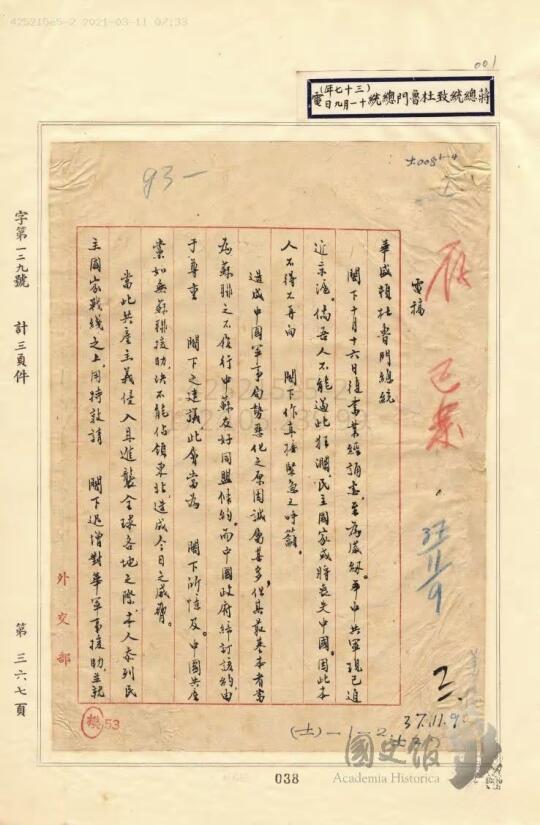 42521565-2 2021-03-11 07:33
001
蔣總統致杜魯門總統(三十七年)十一月九日電
93一
存
已
37/11/9
電稿
華盛頓杜魯門總統
閣下十月十六日復書業經誦悉，至為感級。華中共軍現已進
近京滬。倘吾人不能遏此狂瀾，民主國家或將喪失中國。因此本
人不得不再向 閣下作直接緊急之呼籲。
造成中國軍事局勢惡化之原因誠屬甚多，但其最基本者當
為蘇聯之不履行中蘇友好同盟條約。而中國政府締訂該約由
于尊重 閣下之建議此會當為 閣下所憶及。中國共產
黨如無蘇聯援助，決不能佔領東北，造成今日之威脅。
當此共產主義侵入且進襲全球各地之際，本人忝列民
主國家戰綫之上，用特敦請 閣下迅增對華軍事援助，並就
外交部
機
53
字第一二九號 計三頁件
第三六七頁
37.11.9
(七)-1-2
038
國史館
Academia Historica